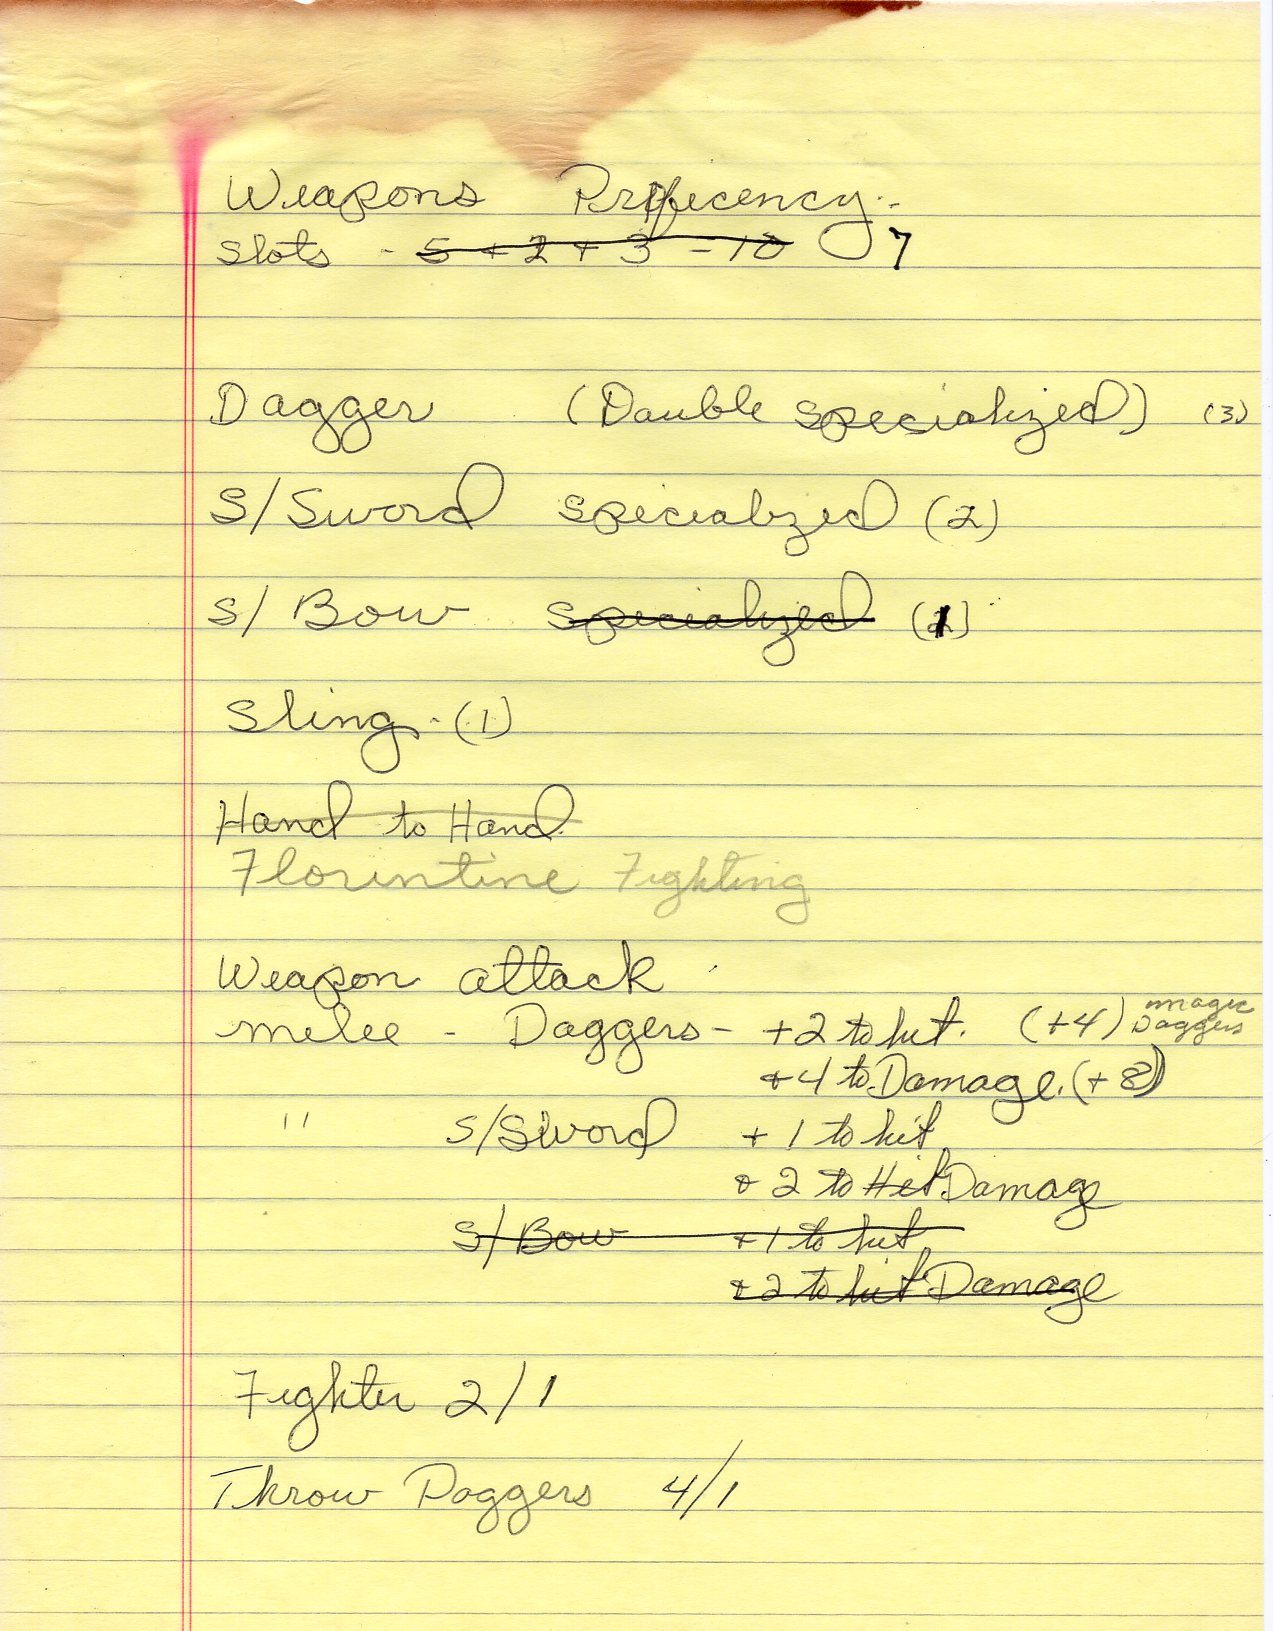 Weapons Prificency
Slots - 5 + 2 + 3 = 10 7
Dagger (Double specialized) (3)
S/Sword specialized (2)
S/Bow specialized (1)
Sling - (1)
Hand to Hand
Florintine Fighting
Weapon attack
melee - Daggers - +2 to hit. (+4) magic Daggers
+4 to Damage. (+8)
" S/Sword +1 to hit
+2 to Hit Damage
S/Bow +1 to hit
+2 to hit Damage
Fighter 2/1
Throw Daggers 4/1